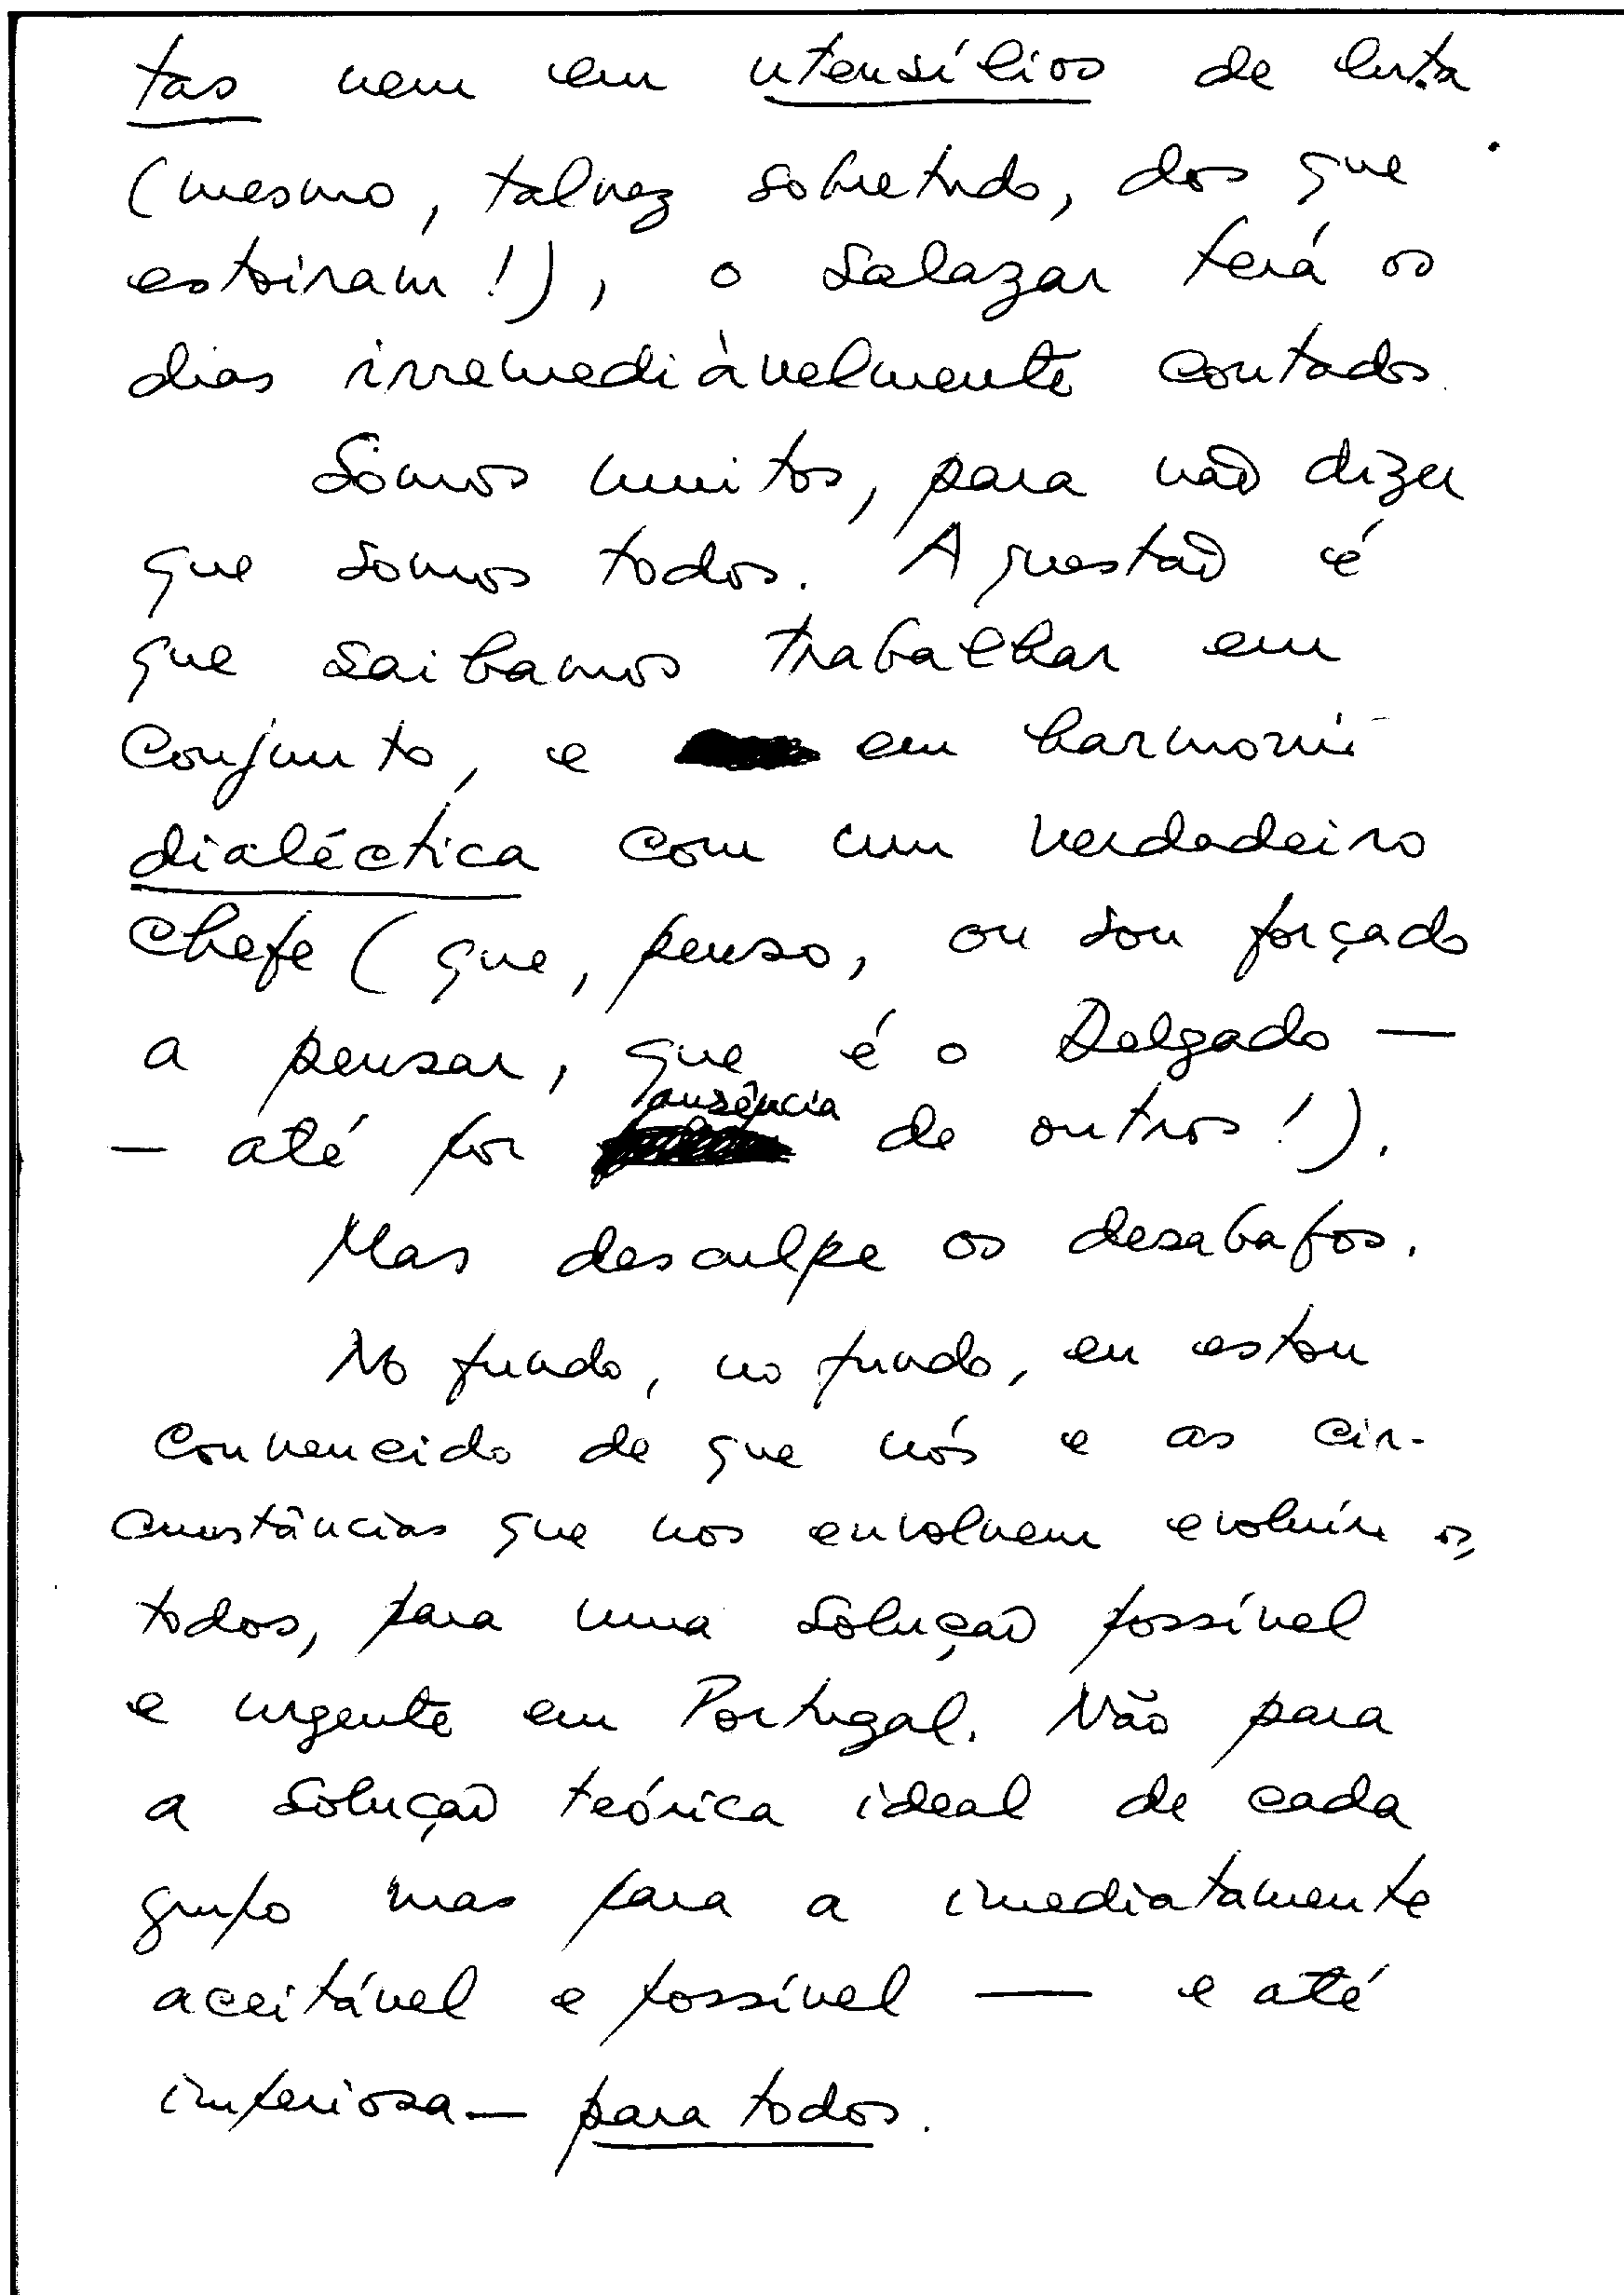 tas nem em utensílios de luta
(mesmo, talvez sobretudo, dos que
estoiram!), o Salazar terá os
dias irremediàvelmente contados.
Somos muitos, para não dizer
que somos todos. A questão é
que saibamos trabalhar em
conjunto, e em harmoni
dialéctica com um verdadeiro
chefe (que, penso, ou sou forçado
a pensar, que é o Delgado —
ausência
— até por de outros!).
Mas desculpe os desabafos.
No fundo, no fundo, eu estou
convencido de que nós e as cir-
cunstâncias que nos envolvem evoluím os,
todos, para uma solução possível
e urgente em Portugal. Não para
a solução teórica ideal de cada
grupo mas para a imediatamente
aceitável e possível — e até
imperiosa — para todos.